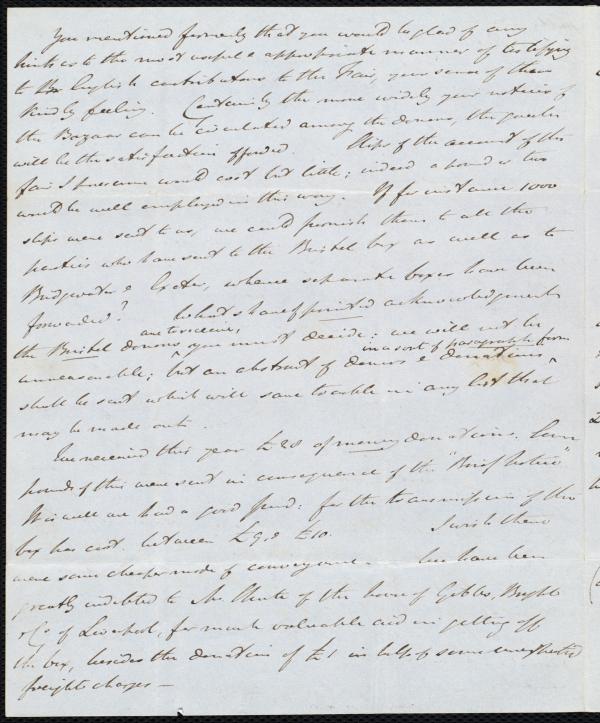 You mentioned formerly that you would be glad of any
hints as to the most useful & appropriate manner of testifying
to the English contributors to the Fair, your sense of their
kindly feeling. Certainly the more widely your notices of
the Bazaar can be circulated among the donors, the greater
will be the satisfaction afforded. Slips of the account of the
fair I presume would cost but little; indeed a pound or two
would be well employed in this way. If for instance 1000
slips were sent to us, we could furnish them to all the
parties who have sent to the Bristol box as well as to
Bridgwater & Exeter, whence separate boxes have been
forwarded? What share of printed acknowledgments
are to receive,
the Bristol donors you must decide: we will not be
in a sort of paragraph form
unreasonable; but an abstract of donors & donations
shall be sent which will save trouble in any list that
may be made out.
We received this year £28 of money donations. Some
pounds of this were sent in consequence of the "Brief Notice"
It is well we had a good fund: for the transmission of the
box has cost between £9 & £10. I wish there
were some cheaper mode of conveyance. We have been
greatly indebted to Mr of the house of Gibbs, Bright
& Co of Liverpool, for much valuable aid in getting off
the box, besides the donation of £1 in help of some
freight charges —